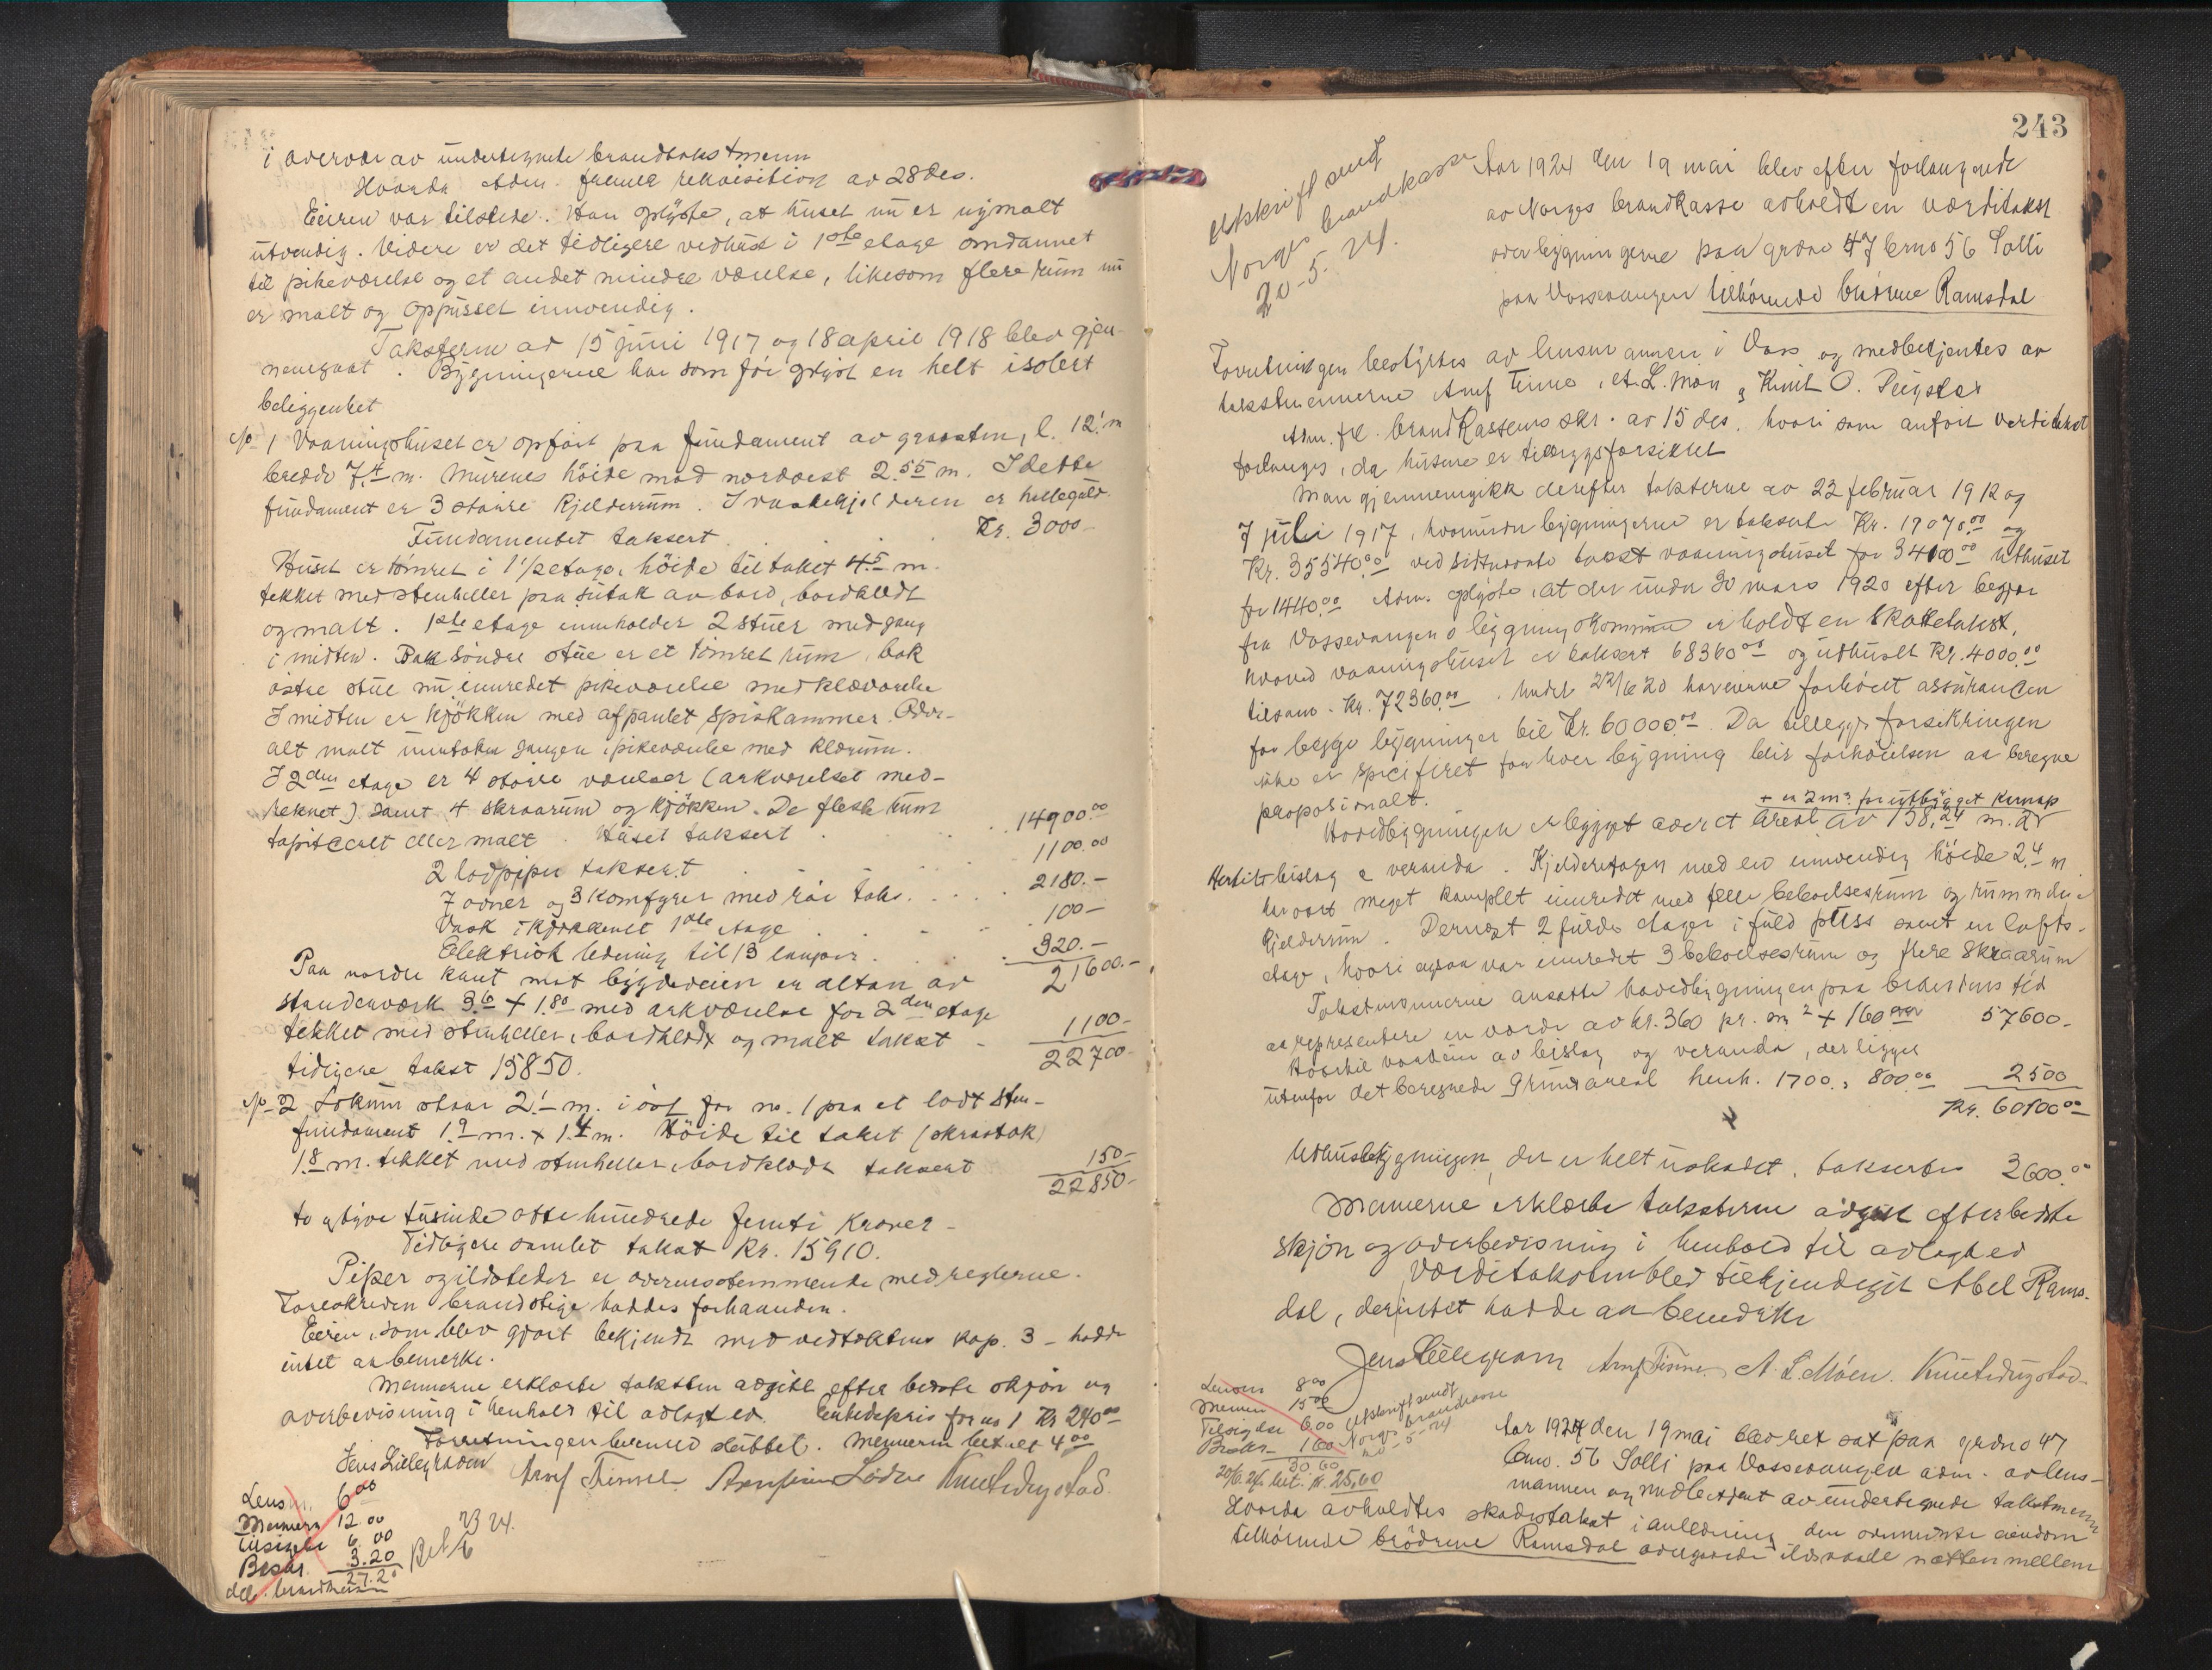 i overvær av undertegnede brandtakstmenn
Hvorda Adm. fremla rekvisition av 28 des.
Eieren var tilstede. Han oplyste, at huset nu er nymalt
utvendig. Videre er det tidligere vedhus i 1ste etage omdannet
til pikeværelse og et andet mindre værelse, likesom flere rum nu
er malt og oppusset innvendig.
Taksterne av 15 juni 1917 og 18 april 1918 blev gjen-
nemgaat. Bygningerne har som før oplyst en helt isolert
beliggenhet
No 1 Vaaningshuset er opført paa fundament av graasten, l. 12.1 m
bredde 7.4 m. Murenes höide mod nordvest 2.55 m. I dette
fundament er 3 större Kjelderrum. I er hellegulv.
Fundamentet taksert . . Kr. 3000-
Huset er tömret i 1 1/2 etage, höide til taket 4.5 m.
tekket med stenheller paa sutak av bord, bordklædt
og malt. 1ste etage inneholder 2 stuer med gang
i midten. Bak söndre stue er et tömret rum, bak
östre stue nu innredet pikeværelse med klæværelse
I midten er kjökken med afpanlet spiskammer. Over-
alt malt unntaken gangen i pikeværelse med klærum.
I 2den etage er 4 större værelser (arkværelset med-
reknet) samt 4 skraarum og kjökken. De fleste rum
tapitseert eller malt. Huset taksert . . . 14900.00
2 lodpiper taksert . . . 1100.00
7 ovner og 3 komfyrer med rör taks. . . . 2180.-
Vask i kjøkkenet 1ste etage . . . 100-
Elektrisk ledning til 13 lamper . . . 320.-
21600.-
Paa nordre kant mot bygdeveien er altan av
standerværk 3.6 + 1.80 med arkværelse for 2den etage
tekket med stenheller, bordklædt og malt takst - 1100-
22700-
tidligere takst 15850.
No 2 Lokum staar 2.1 m. i öst for no. 1 paa et lodt sten-
fundament 1.9 m. x 1.4 m. Höide til taket (skraatak)
1.8 m. tekket med stenheller, bordklædt taksert 150-
22850-
to og tyve tusinde otte hundrede femti Kroner -
Tidligere samlet takst Kr. 15910.
Piper og ildsteder er overensstemmende med reglerne.
Foreskreven brandstige haddes forhaanden.
Eieren, som blev gjort bekjendt med vedtektens kap. 3 - hadde
intet aa bemerke.
Mennerne erklærte taksten avgit efter bedste skjøn og
overbevisning i henhold til avlagt ed. Enhedspris for no 1 Kr 240.00
Forretningen dermed sluttet. Mennerne betalt 4.00
Jens Lillegraven Arnf Finne Knut Dugstad.
Lensm. 6.00
Mennerne 12.00
Tilsigelse 6.00
Beskr. 3.20
27.20
Bet
243
Utskrift sendt
Norges brandkasse
20-5-24.
Aar 1924 den 19 mai blev efter forlangende
av Norges brandkasse avholdt en værditakst
over bygningerne paa grdno 47 brno 56 Solli
paa Vossevangen tilhörende brödrene Ramsdal
Forretningen bestyrtes av lensmannen i Voss og medbetjentes av
takstmennerne Arnf Finne, A. L. Möen, Knut O. Dugstad
Adm. fr. brandkassens skr. av 15 des. hvori som anfört værditakst
forlanges, da husene er tilleggsforsikret
Man gjennemgikk derefter taksterne av 22 februar 1912 og
7 juli 1917, hvorunder bygningerne er taksert Kr. 19070.00 og
Kr. 35540.00 ved sidstnævnte takst vaaningshuset for 34100.00 uthuset
for 1440.00 Adm. oplyste, at der under 30 mars 1920 efter begjær
fra Vossevangens bygningskommune er holdt en skattetakst,
hvorved vaaningshuset er taksert 68360.00 og uthuset Kr. 4000.00
tilsam. Kr. 72360.00. Under 22/6 20 har eierne forhöiet assurancen
for begge bygninger til Kr. 60000.00. Da tilleggsforsikringen
ikke er specifiret for hver bygning blir forhöielsen aa beregne
proposionalt.
+ ca 2 m2 for utbygget kvrap
Hovedbygningen er bygget over et areal av 158,24 m.2
Hertil bislag & veranda. Kjelderetagen med en innvendig höide 2.4 m
har vært meget komplet innredet med flere beboelsesrum og
kjelderrum. Dernæst 2 fulde etager i fuld puss samt en lofts-
etage, hvori ogsaa var innredet 3 beboelsesrum og flere skraarum
Takstmennerne ansatte hovedbygningen paa tid
aa representere en værdi av kr. 360 pr. m2 + 160 57600-
Hertil værdien av bislag og veranda, der ligger
utenfor det beregnede grundareal henh. 1700., 800.00 2500
Kr. 60100.00
Uthusbygningen, der er helt uskadt, takserte 3600.00
Mennerne erklærte taksterne avgit efter bedste
skjön og overbevisning i henhold til avlagt ed
Værditaksten blev tilkjendegit Abel Rams-
dal, der intet hadde aa bemerke
Jens Lillegraven Arnf Finne A. L. Möen. Knut Dugstad
Lensm 8.00
Mennen 15.00
Tilsigelse 6.00
Beskr. 1.60
30.60
20/6 24 bet. kr. 25,00
Utskrift sendt
Norges brandkasse
20-5-24
Aar 1924 den 19 mai blev ret sat paa grdno 47
brno. 56 Solli paa Vossevangen adm. av lens-
mannen og medbetjent av undertegnede takstmenn
Hvorda avholdtes skadestakst i anledning den
tilhörende brödrene Ramsdal overgaaede ildsvaade natten mellem